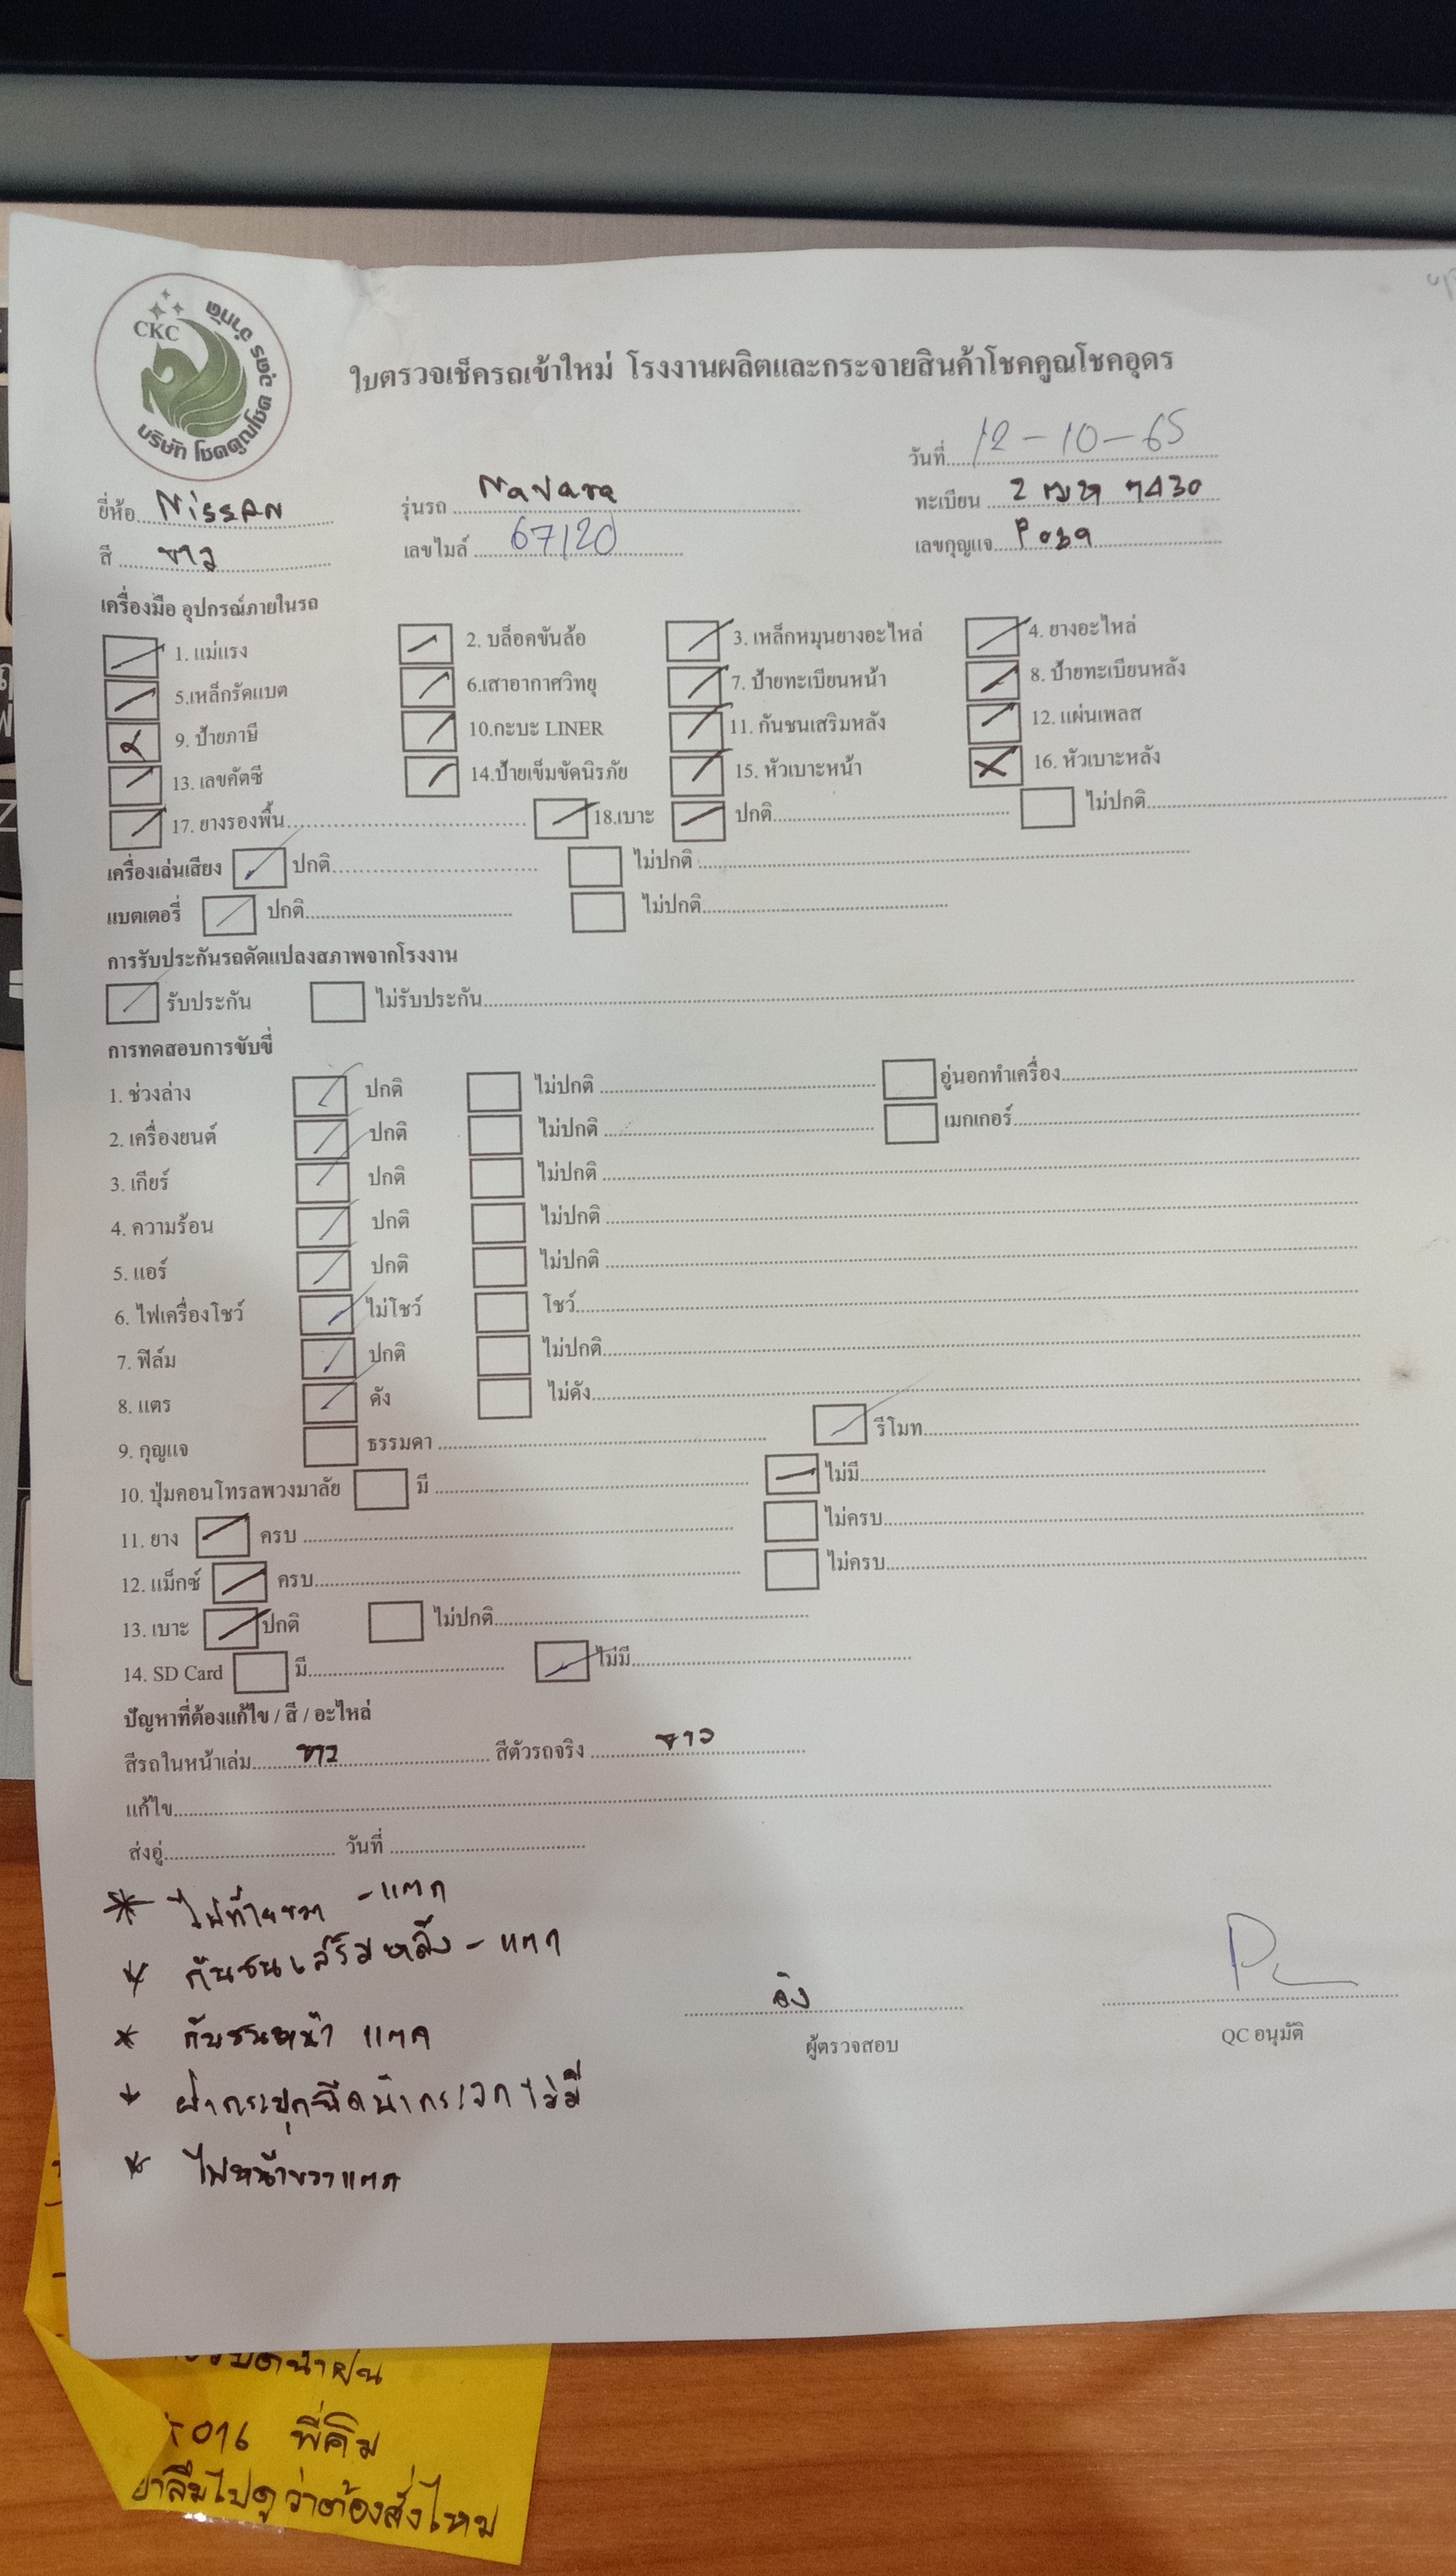 CKC
บริษัท โชคคูณโชค อุดร จำกัด
ใบตรวจเช็ครถเข้าใหม่ โรงงานผลิตและกระจายสินค้าโชคคูณโชคอุดร
วันที่ 12-10-65
ยี่ห้อ NISSAN รุ่นรถ Navara ทะเบียน 2
สี ขาว เลขไมล์ 67120 เลขกุญแจ
เครื่องมือ อุปกรณ์ภายในรถ
1. แม่แรง 2. บล็อคขันล้อ 3. เหล็กหมุนยางอะไหล่ 4. ยางอะไหล่
5.เหล็กรัดแบต 6.เสาอากาศวิทยุ 7. ป้ายทะเบียนหน้า 8. ป้ายทะเบียนหลัง
9. ป้ายภาษี 10.กะบะ LINER 11. กันชนเสริมหลัง 12. แผ่นเพลส
13. เลขคัตซี 14.ป้ายเข็มขัดนิรภัย 15. หัวเบาะหน้า 16. หัวเบาะหลัง
17. ยางรองพื้น 18.เบาะ ปกติ ไม่ปกติ
เครื่องเล่นเสียง ปกติ ไม่ปกติ
แบตเตอรี่ ปกติ ไม่ปกติ
การรับประกันรถดัดแปลงสภาพจากโรงงาน
รับประกัน ไม่รับประกัน
การทดสอบการขับขี่
1. ช่วงล่าง ปกติ ไม่ปกติ อู่นอกทำเครื่อง
2. เครื่องยนต์ ปกติ ไม่ปกติ เมกเกอร์
3. เกียร์ ปกติ ไม่ปกติ
4. ความร้อน ปกติ ไม่ปกติ
5. แอร์ ปกติ ไม่ปกติ
6. ไฟเครื่องโชว์ ไม่โชว์ โชว์
7. ฟิล์ม ปกติ ไม่ปกติ
8. แตร ดัง ไม่ดัง
9. กุญแจ ธรรมดา รีโมท
10. ปุ่มคอนโทรลพวงมาลัย มี ไม่มี
11. ยาง ครบ ไม่ครบ
12. แม็กซ์ ครบ ไม่ครบ
13. เบาะ ปกติ ไม่ปกติ
14. SD Card มี ไม่มี
ปัญหาที่ต้องแก้ไข / สี / อะไหล่
สีรถในหน้าเล่ม ขาว สีตัวรถจริง ขาว
แก้ไข
ส่งอู่ วันที่
* ไฟท้ายขวา - แตก
* กันชนเสริมหลัง - แตก
* กันชนหน้า แตก
* ฝากระปุกฉีดน้ำกระจกไม่มี
* ไฟหน้าขวาแตก
ผู้ตรวจสอบ
QC อนุมัติ
น้ำฝน
พี่คิม
ลืมไปดูว่าต้องสั่งไหม